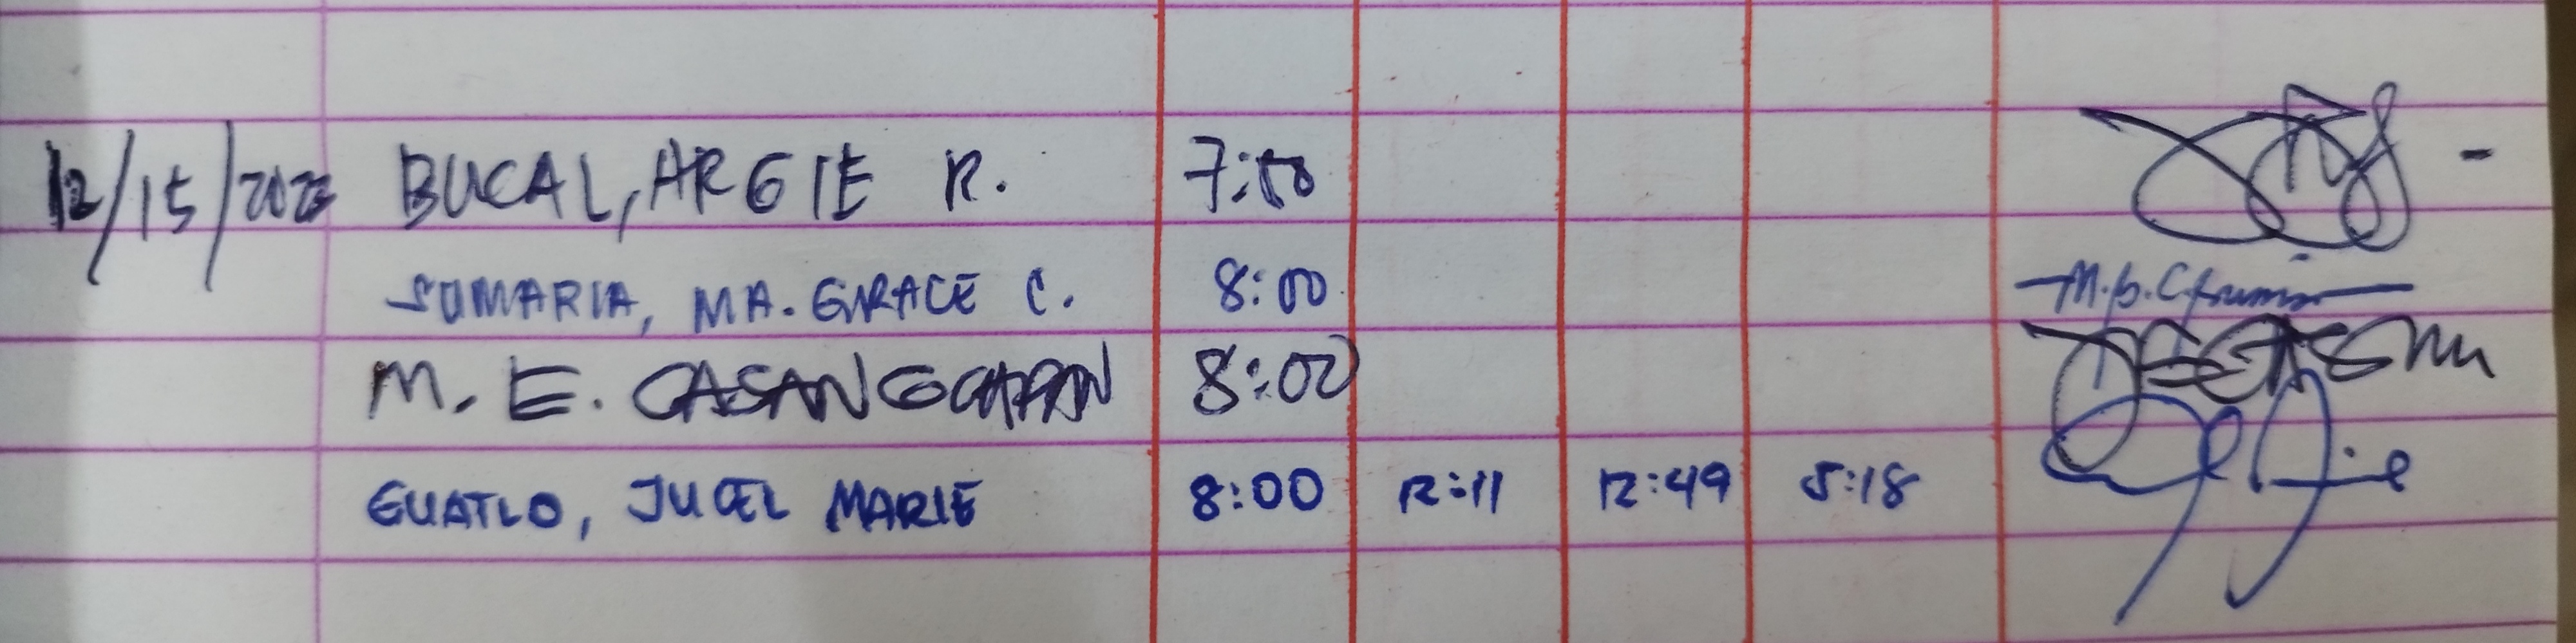 12/15/2023 BUCAL, ARGIE R. 7:50
SUMARIA, MA. GRACE C. 8:00
M. E. CASANGCAPAN 8:00
GUATLO, JUCEL MARIE 8:00 12:11 12:49 5:18